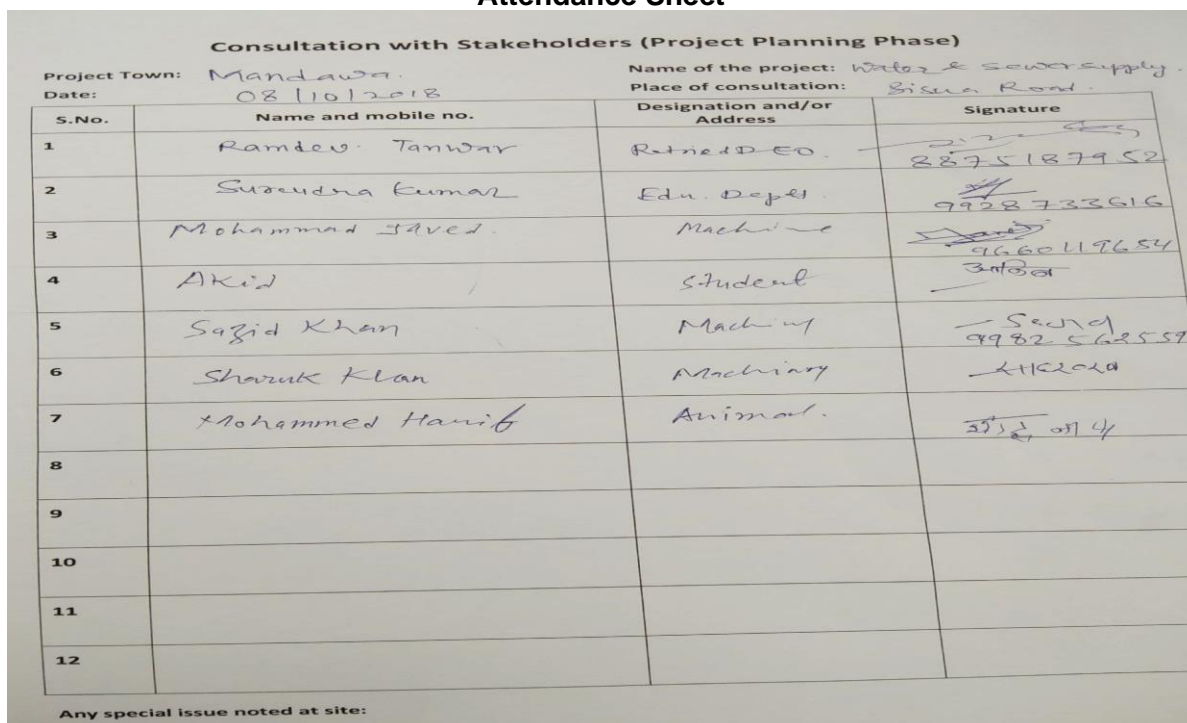 Attendance Sheet
Consultation with Stakeholders (Project Planning Phase)
Project Town: Mandawa. Name of the project: Water & sewer supply.
Date: 08/10/2018 Place of consultation: Road.
S.No. Name and mobile no. Designation and/or Address Signature
1 Ramdev. Tanwar
8875187952
2 Surendra Kumar Edu. Deptt.
9928733616
3 Mohammad Javed. Machine
9660119654
4 Akid Student
5 Sazid Khan
9982562559
6 Sharuk Khan Machinary
7 Mohammed Hanif Animal.
8
9
10
11
12
Any special issue noted at site: